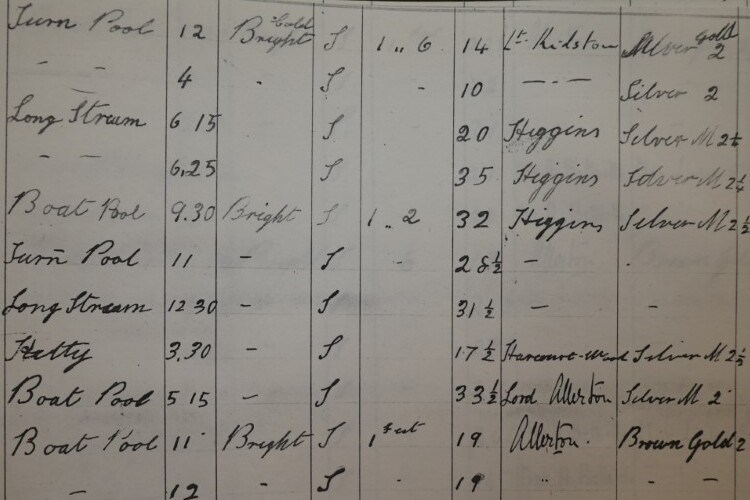 Turn Pool 12 Bright Cold S 1 " 6 14 Lt. Kidston Silver Gold 2
– – 4 " S " 10 – " – Silver 2
Long Stream 6 15 S 20 Higgins Silver M 2¼
– – 6.25 S 35 Higgins Silver M 2¼
Boat Pool 9.30 Bright S 1 " 2 32 Higgins Silver M 2½
Turn Pool 11 – S 28½ – "
Long Stream 12 30 – S 31½ – –
Hetty 3.30 – S 17½ Harcourt-Wood Silver M 2½
Boat Pool 5 15 – S 33½ Lord Allerton Silver M 2
Boat Pool 11 Bright S 1 19 Allerton. Brown Gold 2
– 12 S 19 " – –